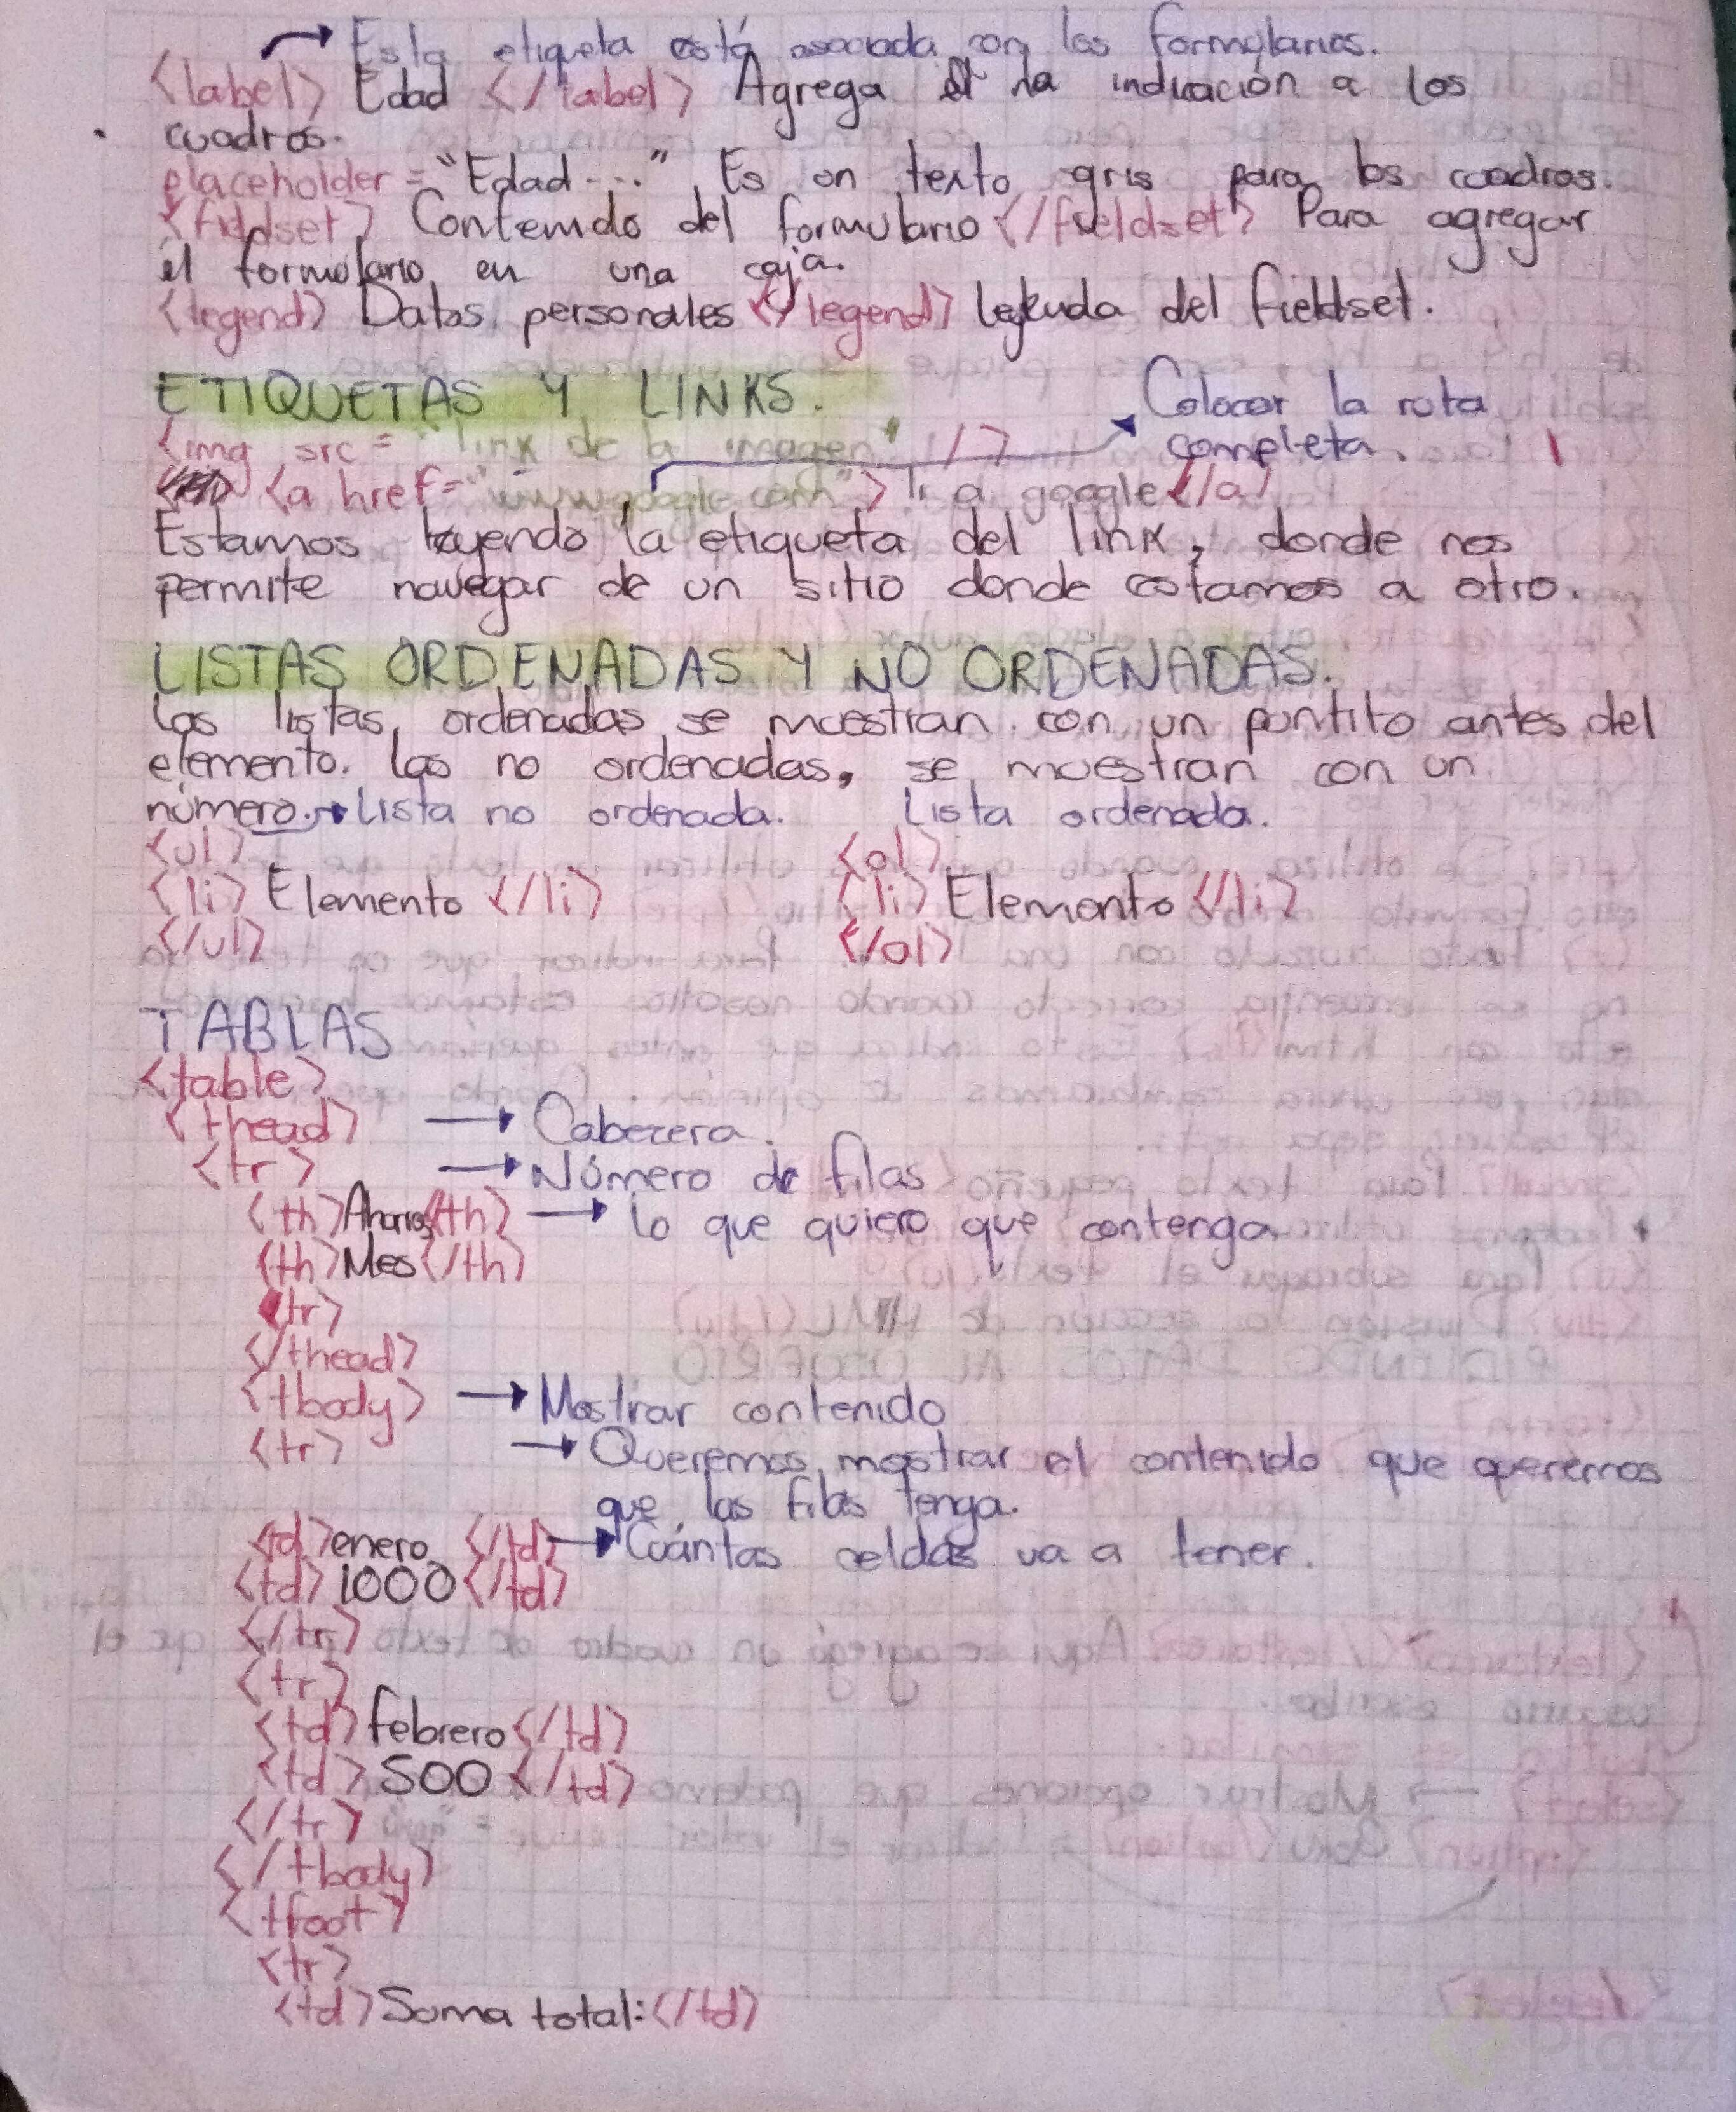 Esta etiqueta está asociada con los formularios.
<label> Edad </label> Agrega una indicación a los
cuadros.
placeholder = "Edad...." Es un texto gris para los cuadros.
<fieldset> Contenido del formulario </fieldset> Para agregar
el formulario en una caja.
<legend> Datos personales </legend> leyenda del fieldset.
ETIQUETAS Y LINKS.
Colocar la ruta
completa.
<img src = "link de la imagen" />
<a href="www.google.com"> Ir a google </a>
Estamos trayendo la etiqueta del link, donde nos
permite navegar de un sitio donde estamos a otro.
LISTAS ORDENADAS Y NO ORDENADAS.
Las listas ordenadas se muestran con un puntito antes del
elemento. Las no ordenadas, se muestran con un
número. → Lista no ordenada. Lista ordenada.
<ul> <ol>
<li> Elemento </li> <li> Elemento </li>
</ul> </ol>
TABLAS
<table>
<thead> → Cabezera.
<tr> → Número de filas
<th>Ahorros</th> → Lo que quiero que contenga
<th>Mes</th>
<tr>
</thead>
<tbody> → Mostrar contenido
<tr> → Queremos mostrar el contenido que queremos
que las filas tenga.
<td>enero </td> → Cuántas celdas va a tener.
<td>1000</td>
</tr>
<tr>
<td>febrero</td>
<td>500</td>
</tr>
</tbody>
<tfoot>
<tr>
<td>Suma total:</td>
Platzi